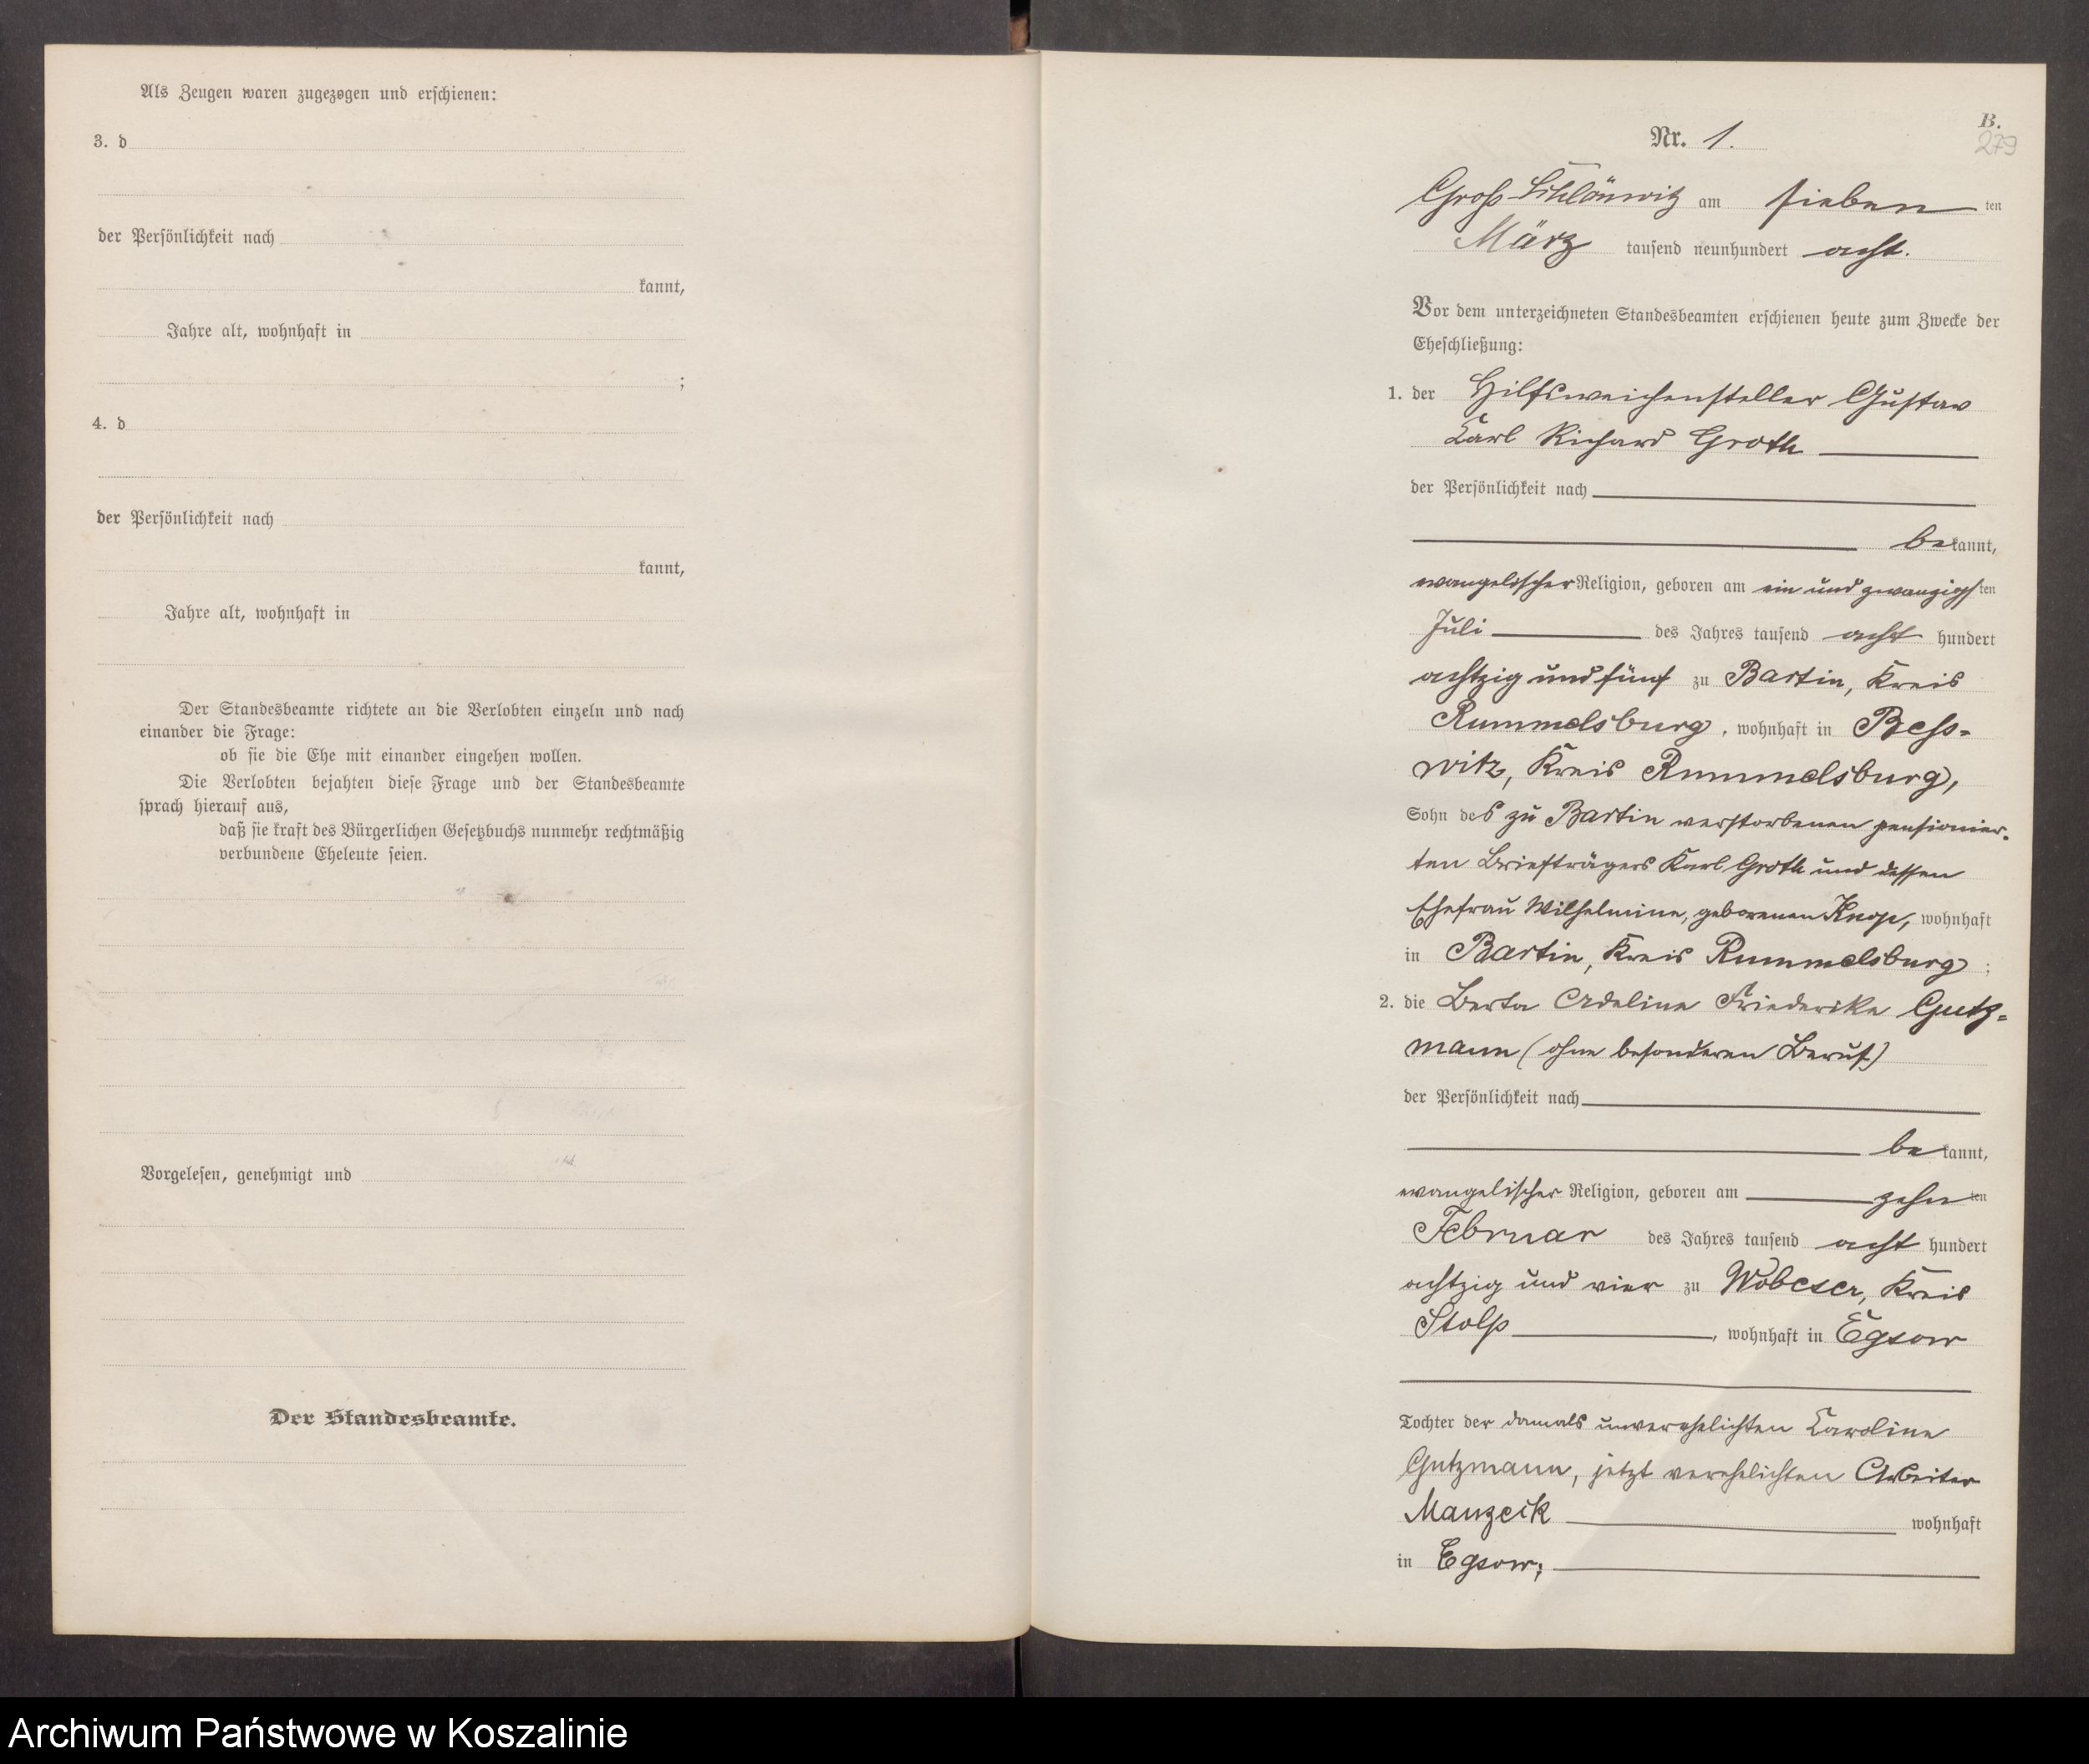 Als Zeugen waren zugezogen und erschienen:
3. d
der Persönlichkeit nach
kannt,
Jahre alt, wohnhaft in
;
4. d
der Persönlichkeit nach
kannt,
Jahre alt, wohnhaft in
Der Standesbeamte richtete an die Verlobten einzeln und nach
einander die Frage:
ob sie die Ehe mit einander eingehen wollen.
Die Verlobten bejahten diese Frage und der Standesbeamte
sprach hierauf aus,
daß sie kraft des Bürgerlichen Gesetzbuchs nunmehr rechtmäßig
verbundene Eheleute seien.
Vorgelesen, genehmigt und
Der Standesbeamte.
B.
Nr. 1.
279
Groß Schlönwitz am sieben ten
März tausend neunhundert acht.
Vor dem unterzeichneten Standesbeamten erschienen heute zum Zwecke der
Eheschließung:
1. der Hilfsweichensteller Gustav
Karl Richard Groth
der Persönlichkeit nach
bekannt,
evangelischer Religion, geboren am ein und zwanzigsten
Juli des Jahres tausend acht hundert
achtzig und fünf zu Bartin, Kreis
Rummelsburg, wohnhaft in Bess-
witz, Kreis Rummelsburg,
Sohn des zu Bartin verstorbenen pensionier-
ten Briefträgers Karl Groth und dessen
Ehefrau Wilhelmine, geborenen Knop, wohnhaft
in Bartin, Kreis Rummelsburg;
2. die Berta Adeline Friederike Gutz-
mann (ohne besonderen Beruf)
der Persönlichkeit nach
bekannt,
evangelischer Religion, geboren am zehnten
Februar des Jahres tausend acht hundert
achtzig und vier zu Wobeser, Kreis
Stolp, wohnhaft in Egsow
Tochter der damals unverehelichten Karoline
Gutzmann, jetzt verehelichten Arbeiter
Manzeik wohnhaft
in Egsow;
Archiwum Państwowe w Koszalinie